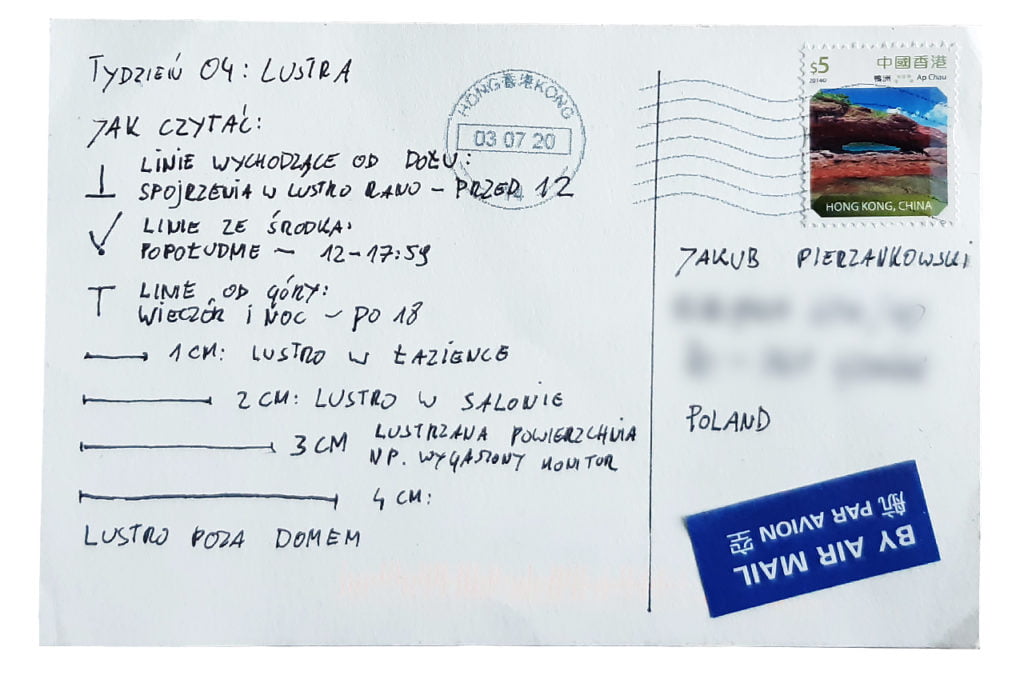 TYDZIEŃ 04: LUSTRA
JAK CZYTAĆ:
LINIE WYCHODZĄCE OD DOŁU:
SPOJRZENIA W LUSTRO RANO – PRZED 12
LINIE ZE ŚRODKA:
POPOŁUDNIE – 12–17:59
LINIE OD GÓRY:
WIECZÓR I NOC – PO 18
1 CM: LUSTRO W ŁAZIENCE
2 CM: LUSTRO W SALONIE
3 CM LUSTRZANA POWIERZCHNIA
NP. WYGASZONY MONITOR
4 CM:
LUSTRO POZA DOMEM
HONG 香港 KONG
03 07 20
$5
中國香港
2014
鴨洲 Ap Chau
HONG KONG, CHINA
JAKUB PIERZANKOWSKI
POLAND
BY AIR MAIL
航空 PAR AVION